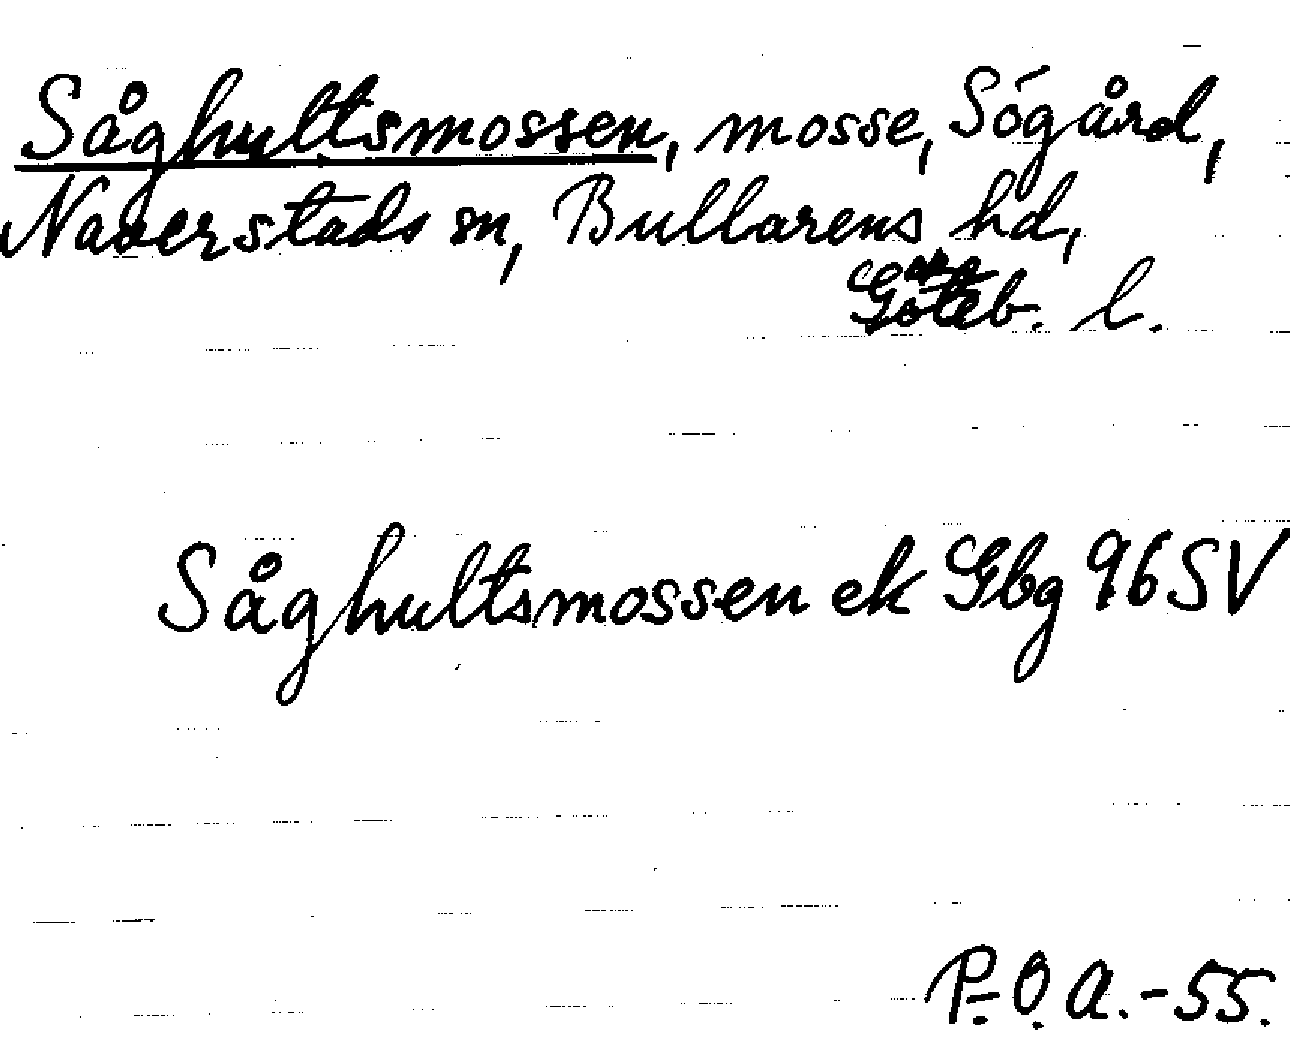 Såghultsmossen, mosse, Sögård,
Naverstads sn, Bullarens hd,
Göteb. l.
Såghultsmossen ek Gbg 96 SV
P.-O. A. -55.